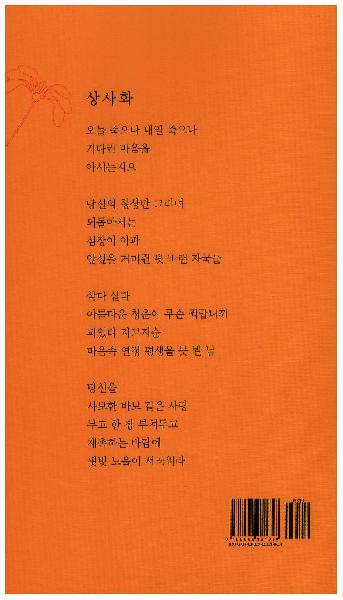 상사화
오늘 죽으나 내일 죽으나
기다린 마음을
아시는지요
당신의 형상만 그리며
뒤돌아서는
심장이 아파
할퀸 자국들
살다 살다
아름다운 청춘이 무슨 죄랍니까
피었다 지고지순
마음속 연정 평생을 못 볼
당신을
사모한 바보 같은 사랑
두고 한 평
재촉하는 바람에
햇빛 노을이 서러워라